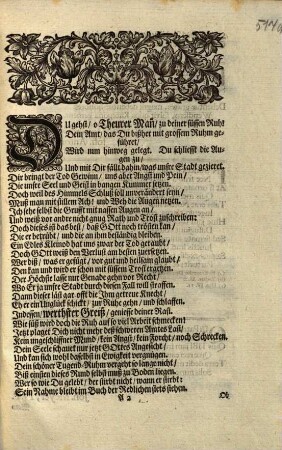 DU gehst / o Theurer Mañ / zu deiner süssen Ruh!
Dein Amt / das Du bißher mit grossem Ruhm ge-
führet /
Wird nun hinweg gelegt. Du schliessst die Au-
gen zu /
Und mit Dir fällt dahin / was unsre Stadt gezieret.
Dir bringt der Tod Gewinn / uns aber Angst und Pein /
Die unsre Seel und Geist in bangen Kummer setzen.
Doch weil des Himmels Schluß soll unverändert seyn /
Muß man mit stillem Ach! und Weh die Augen netzen.
Ich stehe selbst die Grufft mit nassen Augen an /
Und weiß vor andre nicht gnug Rath und Trost zuschreiben:
Doch dieses ist das best / daß GOtt noch trösten kan /
Die er betrübt / und die an ihm beständig bleiben.
Ein Edles Kleinod hat uns zwar der Tod geraubt /
Doch GOtt weiß den Verlust am besten zuersetzen.
Wer diß / was er gefügt / vor gut und heilsam glaubt /
Den kan und wird er schon mit süssem Trost ergetzen.
Der Höchste lasse nur Genade gehn vor Recht /
Wo Er zu unsrer Stadt durch diesen Fall will straffen.
Dann dieser läst gar offt die Ihm getreue Knecht /
Eh er ein Unglück schickt / zur Ruhe gehn / und schlaffen.
Indessen / werthster Greiß / geniesse deiner Rast.
Wie süß wird doch die Ruh auf so viel Arbeit schmecken!
Jetzt plaget Dich nicht mehr deß schweren Amtes Last /
Kein ungeschliffner Mund / kein Angst / kein Forcht / noch Schrecken.
Dein Seele schauet nur jetzt GOttes Angesicht /
Und kan sich wohl daselbst in Ewigkeit vergnügen.
Dein schöner Tugend-Ruhm vergeht so lange nicht /
Biß einsten dieses Rund selbst muß zu Boden liegen.
Wer so wie Du gelebt / der stirbt nicht / wann er stirbt:
Sein Nahme bleibt im Buch der Redlichen stets stehen.
A 2